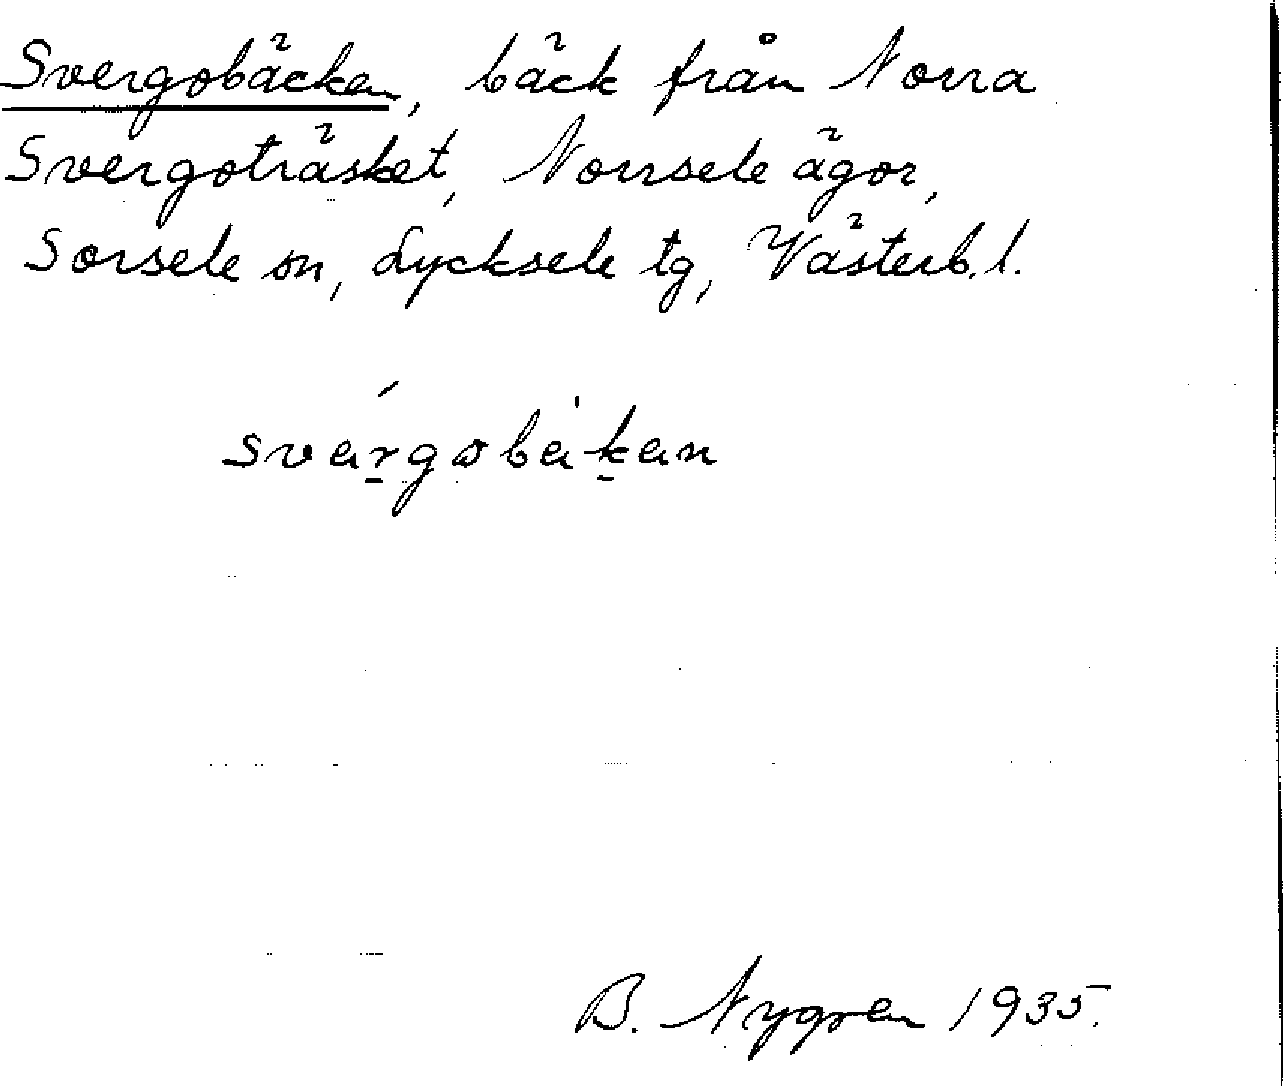 Svergobäcken, bäck från Norra
Svergoträsket, Norrsele ägor,
Sorsele sn, Lycksele tg, Västerb. l.
svärgobäkan
B. Nygren 1935.